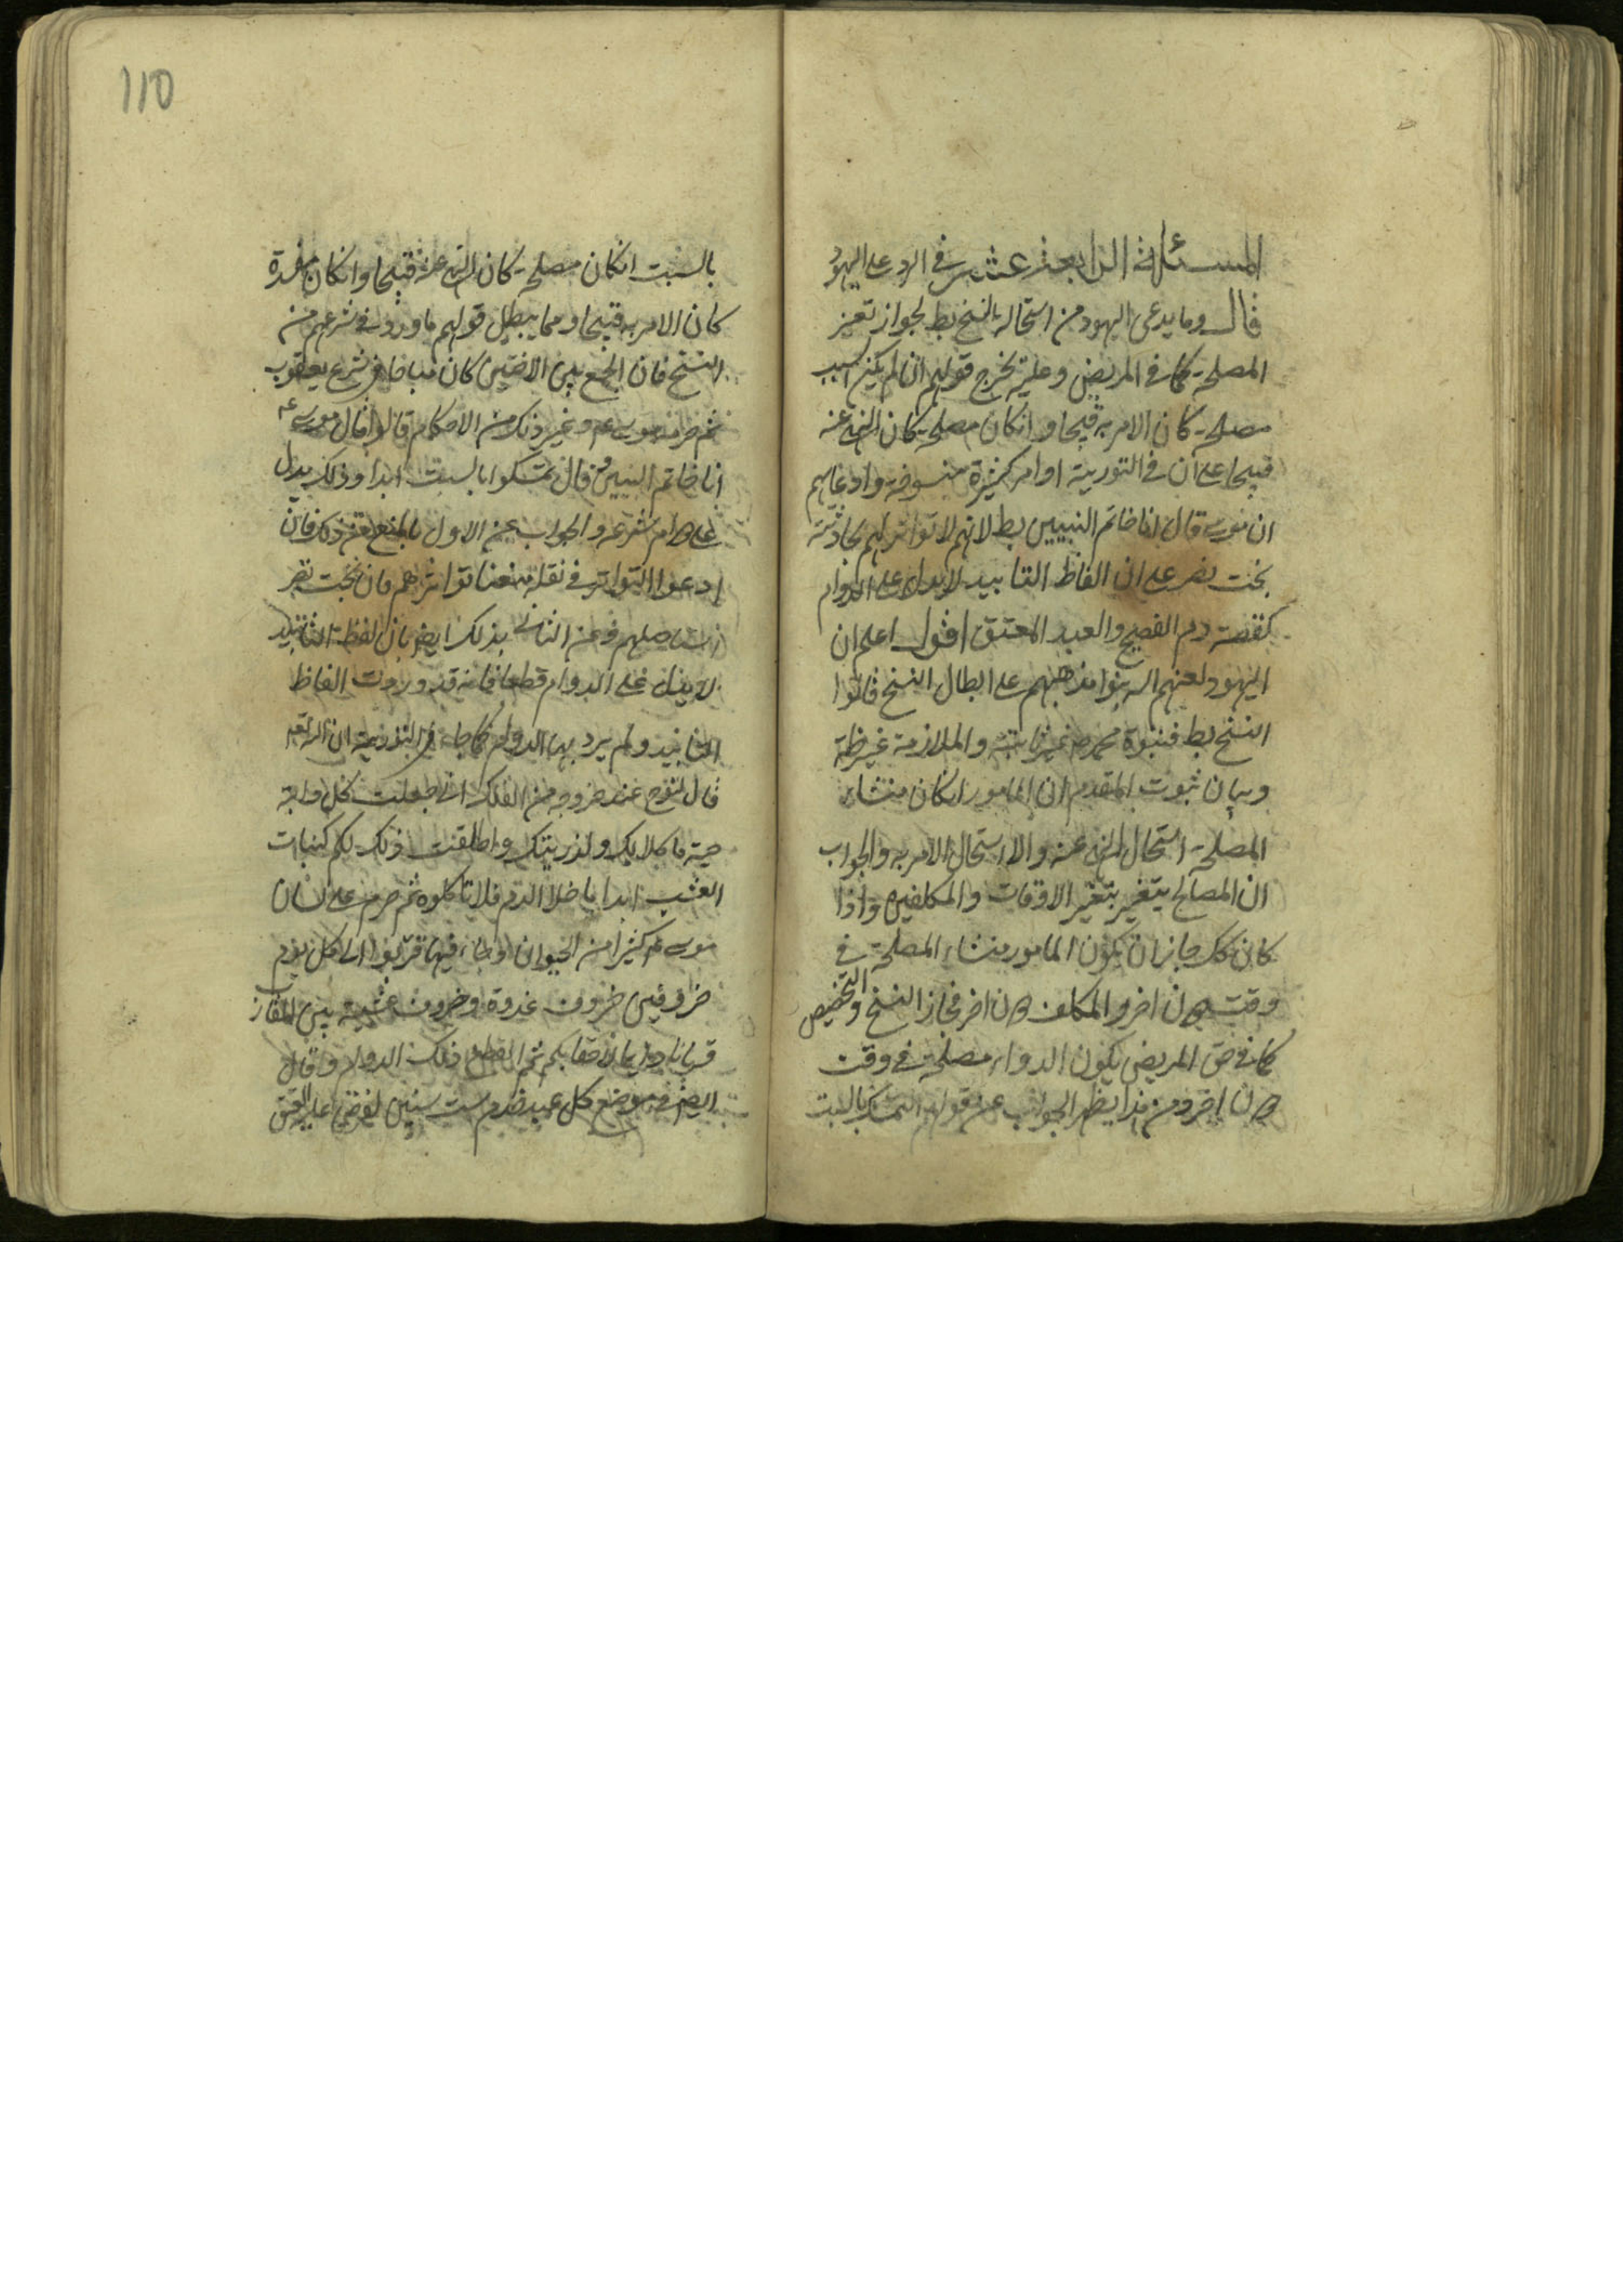 المسئلة الرابعة عشر في الرد على اليهود
قال وما يدعى اليهود من استحالة النسخ بط لجواز تغير
المصلحة كما في المريض وعليه يخرج قولهم ان لم يكن السبت
مصلحة كان الامر به قبيحا وانكان مصلحة كان النهى عنه
قبيحا على ان في التورية اوامر كثيرة منسوخة وادعاؤهم
ان موسى قال انا خاتم النبيين بط لانهم لا تواتر لهم لحادثة
بخت نصر على ان الفاظ التابيد لا يدل على الدوام
كقصة دم الفصح والعبد المعتق اقول اعلم ان
اليهود لعنهم الله بنوا مذهبهم على ابطال النسخ قالوا
النسخ بط فنبوة محمد ص غير ثابتة والملازمة غير ظة
وبيان ثبوت المقدم ان المامور انكان منشاء
المصلحة استحال النهى عنه والا استحال الامر به والجواب
ان المصالح يتغير بتغير الاوقات والمكلفين واذا
كان كك جاز ان يكون المامور منشاء المصلحة في
وقت دون اخر والمكلف دون اخر فجاز النسخ والتخصيص
كما في حق المريض يكون الدواء مصلحة في وقت
دون اخر ومن هذا يظهر الجواب عن قولهم التمسك بالسبت
110
بالسبت انكان مصلحة كان النهى عنه قبيحا وانكان مفسدة
كان الامر به قبيحا ومما يبطل قولهم ما ورد في شرعهم من
النسخ فان الجمع بين الاختين كان مباحا في شرع يعقوب
ثم حرمه موسى عم وغير ذلك من الاحكام قالوا قال موسى عم
انا خاتم النبيين وقال تمسكوا بالسبت ابدا وذلك يدل
على دوام شرعه والجواب عن الاول بالمنع من ذلك فان
ادعوا التواتر في نقله منعنا تواترهم فان بخت نصر
استاصلهم وعن الثاني بذلك ايض بان لفظة التابيد
لا يدل على الدوام قطعا فانه قد وردت الفاظ
التابيد ولم يرد بها الدوام كما جاء في التورية ان الله تعه
قال لنوح عند خروجه من الفلك انى جعلت كل دابة
حية ماكلا لك ولذريتك واطلقت ذلك لكم كنبات
العشب ابدا ما خلا الدم فلا تاكلوه ثم حرم على لسان
موسى عم كثيرا من الحيوان وجاء فيها قربوا الى كل يوم
خروفين خروف غدوة وخروف عشية بين المغارب
قربانا دايما لاحقابكم ثم انقطع ذلك الدوام وقال
ايض في موضع كل عبد خدم ست سنين يعرض عليه العتق